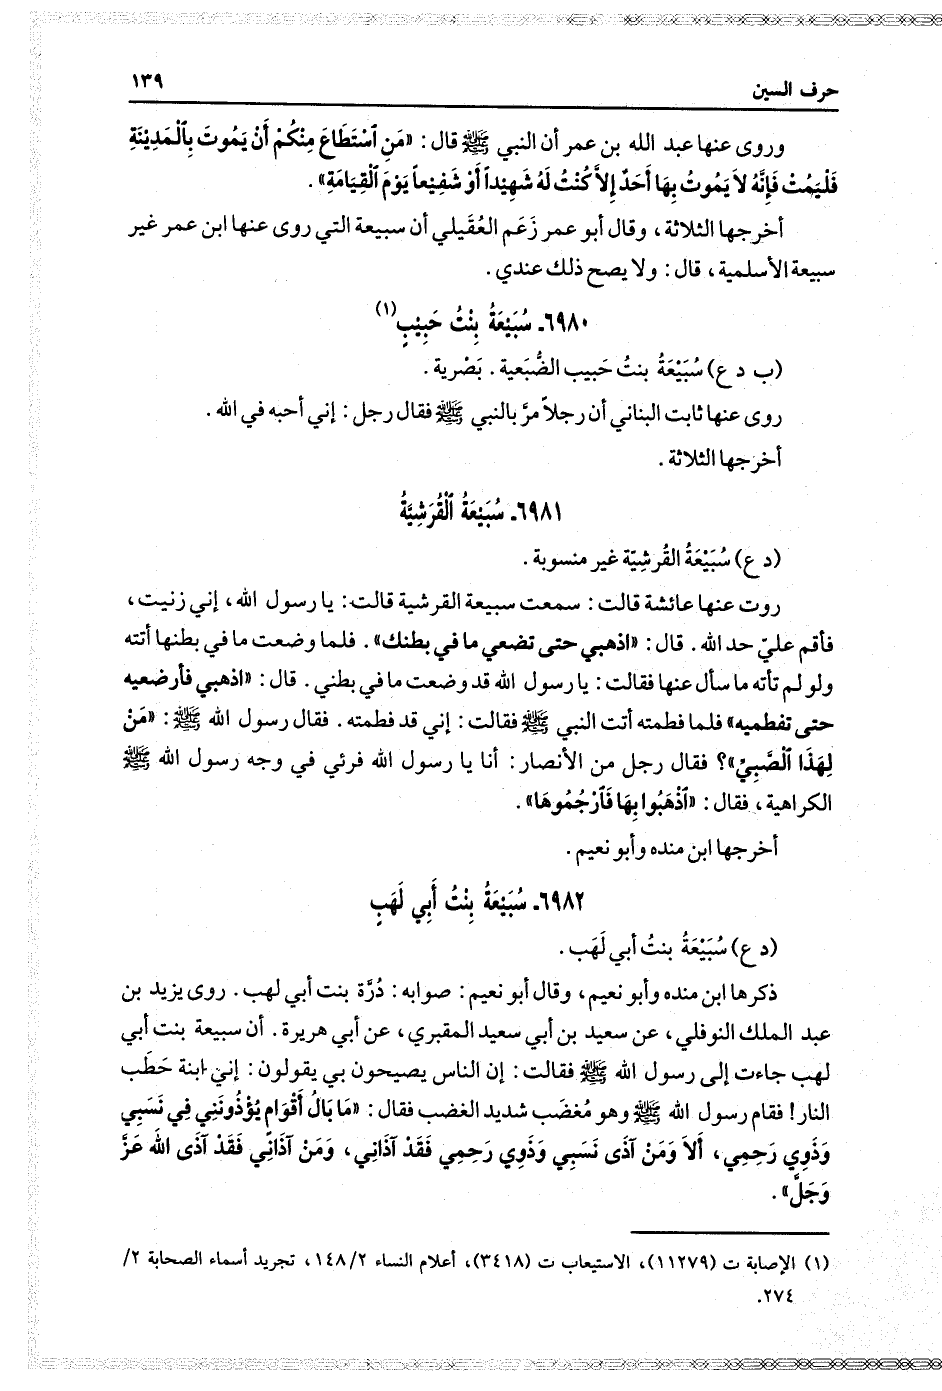 حرف السين ١٣٩
وروى عنها عبد الله بن عمر أن النبي ﷺ قال: «مَنِ ٱسْتَطَاعَ مِنْكُمْ أَنْ يَمُوتَ بِٱلْمَدِيْنَةِ
فَلْيَمُتْ فَإِنَّهُ لاَ يَمُوتُ بِهَا أَحَدٌ إِلاَّ كُنْتُ لَهُ شَهِيْداً أَوْ شَفِيْعاً يَوْمَ ٱلْقِيَامَةِ».
أخرجها الثلاثة، وقال أبو عمر زَعَم العُقَيلي أن سبيعة التي روى عنها ابن عمر غير
سبيعة الأسلمية، قال: ولا يصح ذلك عندي.
٦٩٨٠ـ سُبَيْعَةُ بِنْتُ حَبِيْبٍ(١)
(ب د ع) سُبَيْعَةُ بنتُ حَبيب الضُّبَعية. بَصْرية.
روى عنها ثابت البناني أن رجلاً مرَّ بالنبي ﷺ فقال رجل: إني أحبه في الله.
أخرجها الثلاثة.
٦٩٨١ـ سُبَيْعَةُ ٱلْقُرَشِيَّةُ
(د ع) سُبَيْعَةُ القُرشِيّة غير منسوبة.
روت عنها عائشة قالت: سمعت سبيعة القرشية قالت: يا رسول الله، إني زنيت،
فأقم عليّ حد الله. قال: «اذهبي حتى تضعي ما في بطنك». فلما وضعت ما في بطنها أتته
ولو لم تأته ما سأل عنها فقالت: يا رسول الله قد وضعت ما في بطني. قال: «اذهبي فأرضعيه
حتى تفطميه» فلما فطمته أتت النبي ﷺ فقالت: إني قد فطمته. فقال رسول الله ﷺ: «مَنْ
لِهَذَا ٱلصَّبِيِّ»؟ فقال رجل من الأنصار: أنا يا رسول الله فرئي في وجه رسول الله ﷺ
الكراهية، فقال: «ٱذْهَبُوا بِهَا فَٱرْجُمُوهَا».
أخرجها ابن منده وأبو نعيم.
٦٩٨٢ـ سُبَيْعَةُ بِنْتُ أَبِي لَهَبٍ
(د ع) سُبَيْعَةُ بنتُ أبي لَهَب.
ذكرها ابن منده وأبو نعيم، وقال أبو نعيم: صوابه: دُرَّة بنت أبي لهب. روى يزيد بن
عبد الملك النوفلي، عن سعيد بن أبي سعيد المقبري، عن أبي هريرة. أن سبيعة بنت أبي
لهب جاءت إلى رسول الله ﷺ فقالت: إن الناس يصيحون بي يقولون: إني ابنة حَطَب
النار! فقام رسول الله ﷺ وهو مُغضَب شديد الغضب فقال: «مَا بَالُ أَقْوَامٍ يُؤْذُونَنِي فِي نَسَبِي
وَذَوِي رَحِمِي، أَلاَ وَمَنْ آذَى نَسَبِي وَذَوِي رَحِمِي فَقَدْ آذَانِي، وَمَنْ آذَانِي فَقَدْ آذَى اللَّهَ عَزَّ
وَجَلَّ».
(١) الإصابة ت (١١٢٧٩)، الاستيعاب ت (٣٤١٨)، أعلام النساء ١٤٨/٢، تجريد أسماء الصحابة ٢/
٢٧٤.